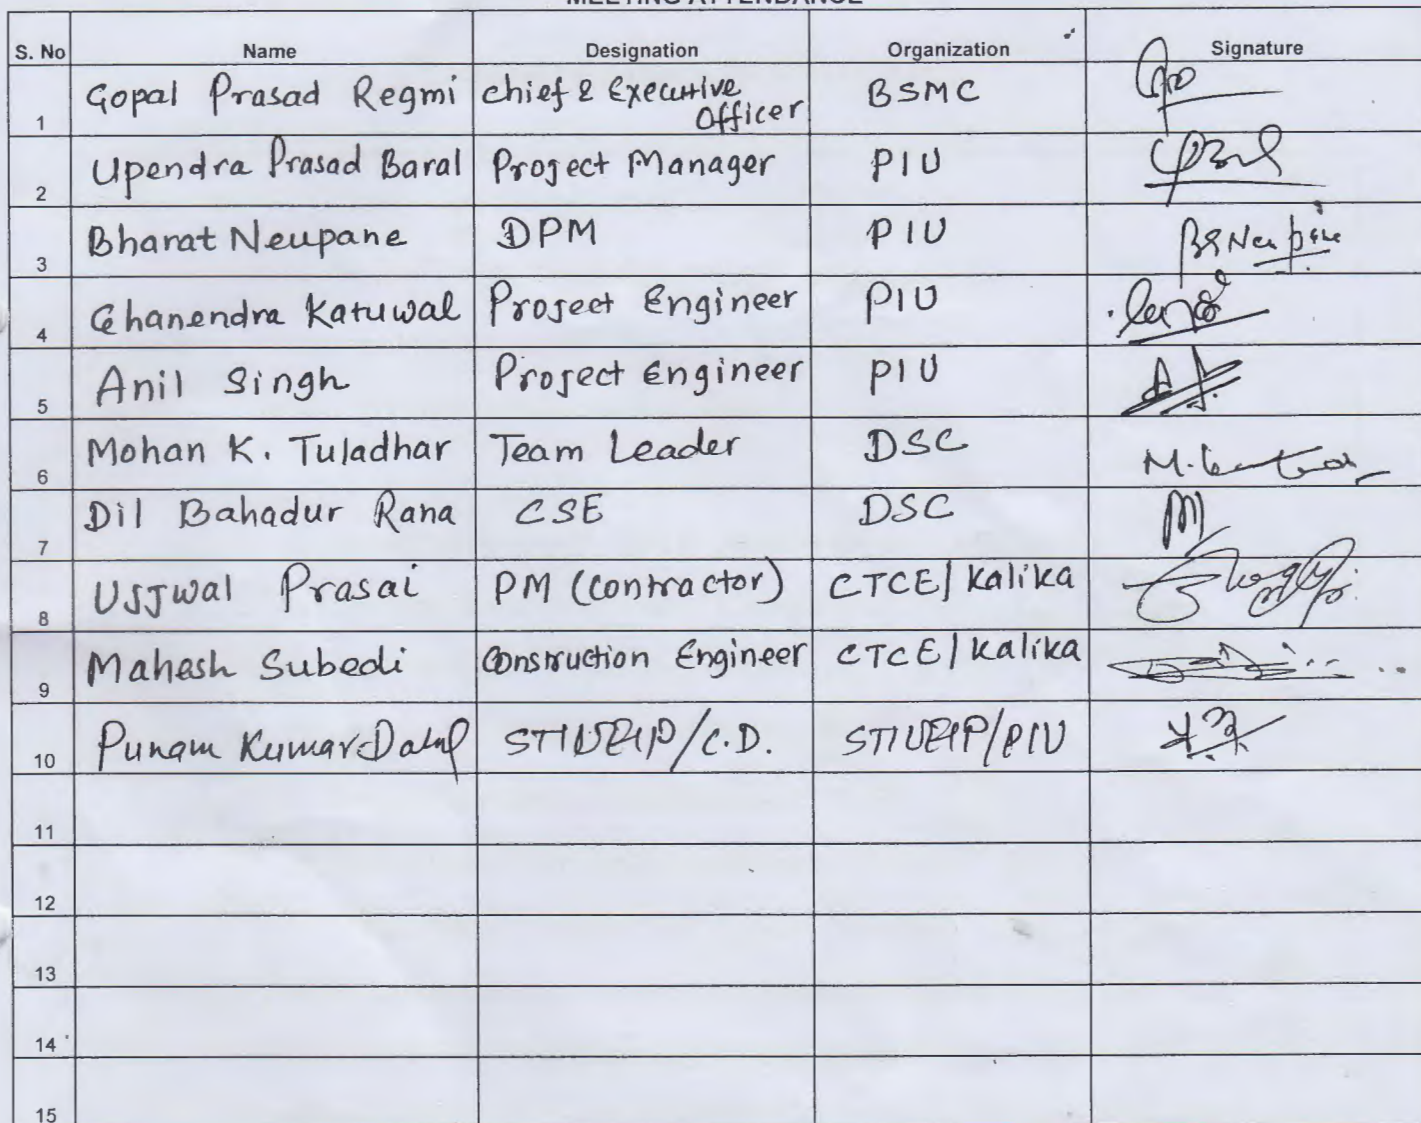 MEETING ATTENDANCE
S. No Name Designation Organization Signature
1 Gopal Prasad Regmi Chief & Executive Officer BSMC
2 Upendra Prasad Baral Project Manager PIU
3 Bharat Neupane DPM PIU BRNeupane
4 Ghanendra Katuwal Project Engineer PIU
5 Anil Singh Project Engineer PIU
6 Mohan K. Tuladhar Team Leader DSC
7 Dil Bahadur Rana CSE DSC
8 Ujjwal Prasai PM (Contractor) CTCE/Kalika
9 Mahesh Subedi Construction Engineer CTCE/Kalika
10 Punam Kumar STIUEIP/C.D. STIUEIP/PIU
11
12
13
14
15